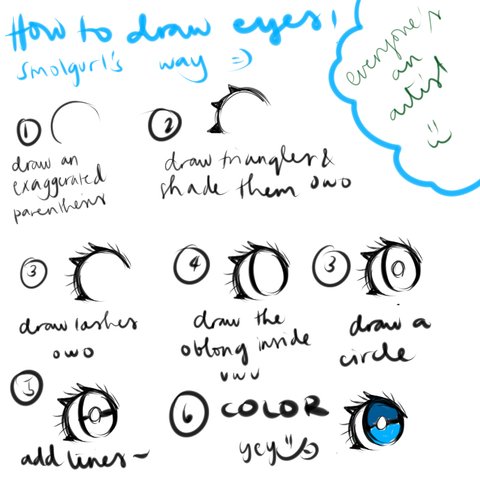 How to draw eyes!
smolgurl's way =)
everyone's
an
artist
=)
1
draw an
exaggerated
parenthesis
2
draw triangles &
shade them owo
3
draw lashes
owo
4
draw the
oblong inside
uwu
3
draw a
circle
5
add lines ~
6 COLOR
yey =)